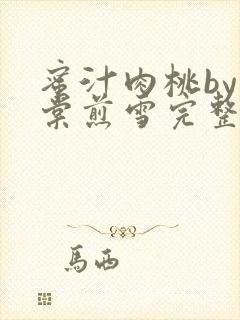 蜜汁肉桃by
棠煎雪完整
馬西